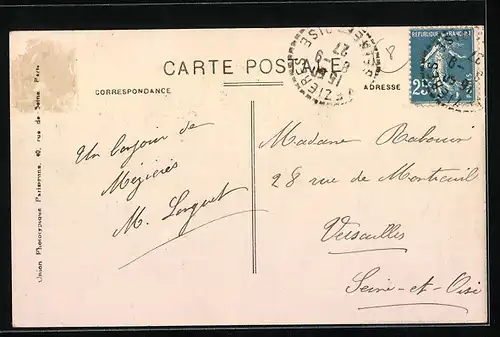 CARTE POSTALE
CORRESPONDANCE
ADRESSE
REPUBLIQUE FRANÇAISE
25
Un bonjour de
Mézières
M. Larguet
Madame Rabouin
28 rue de Montreuil
Versailles
Seine-et-Oise
Union Photographique Parisienne, 40, rue de Seine Paris